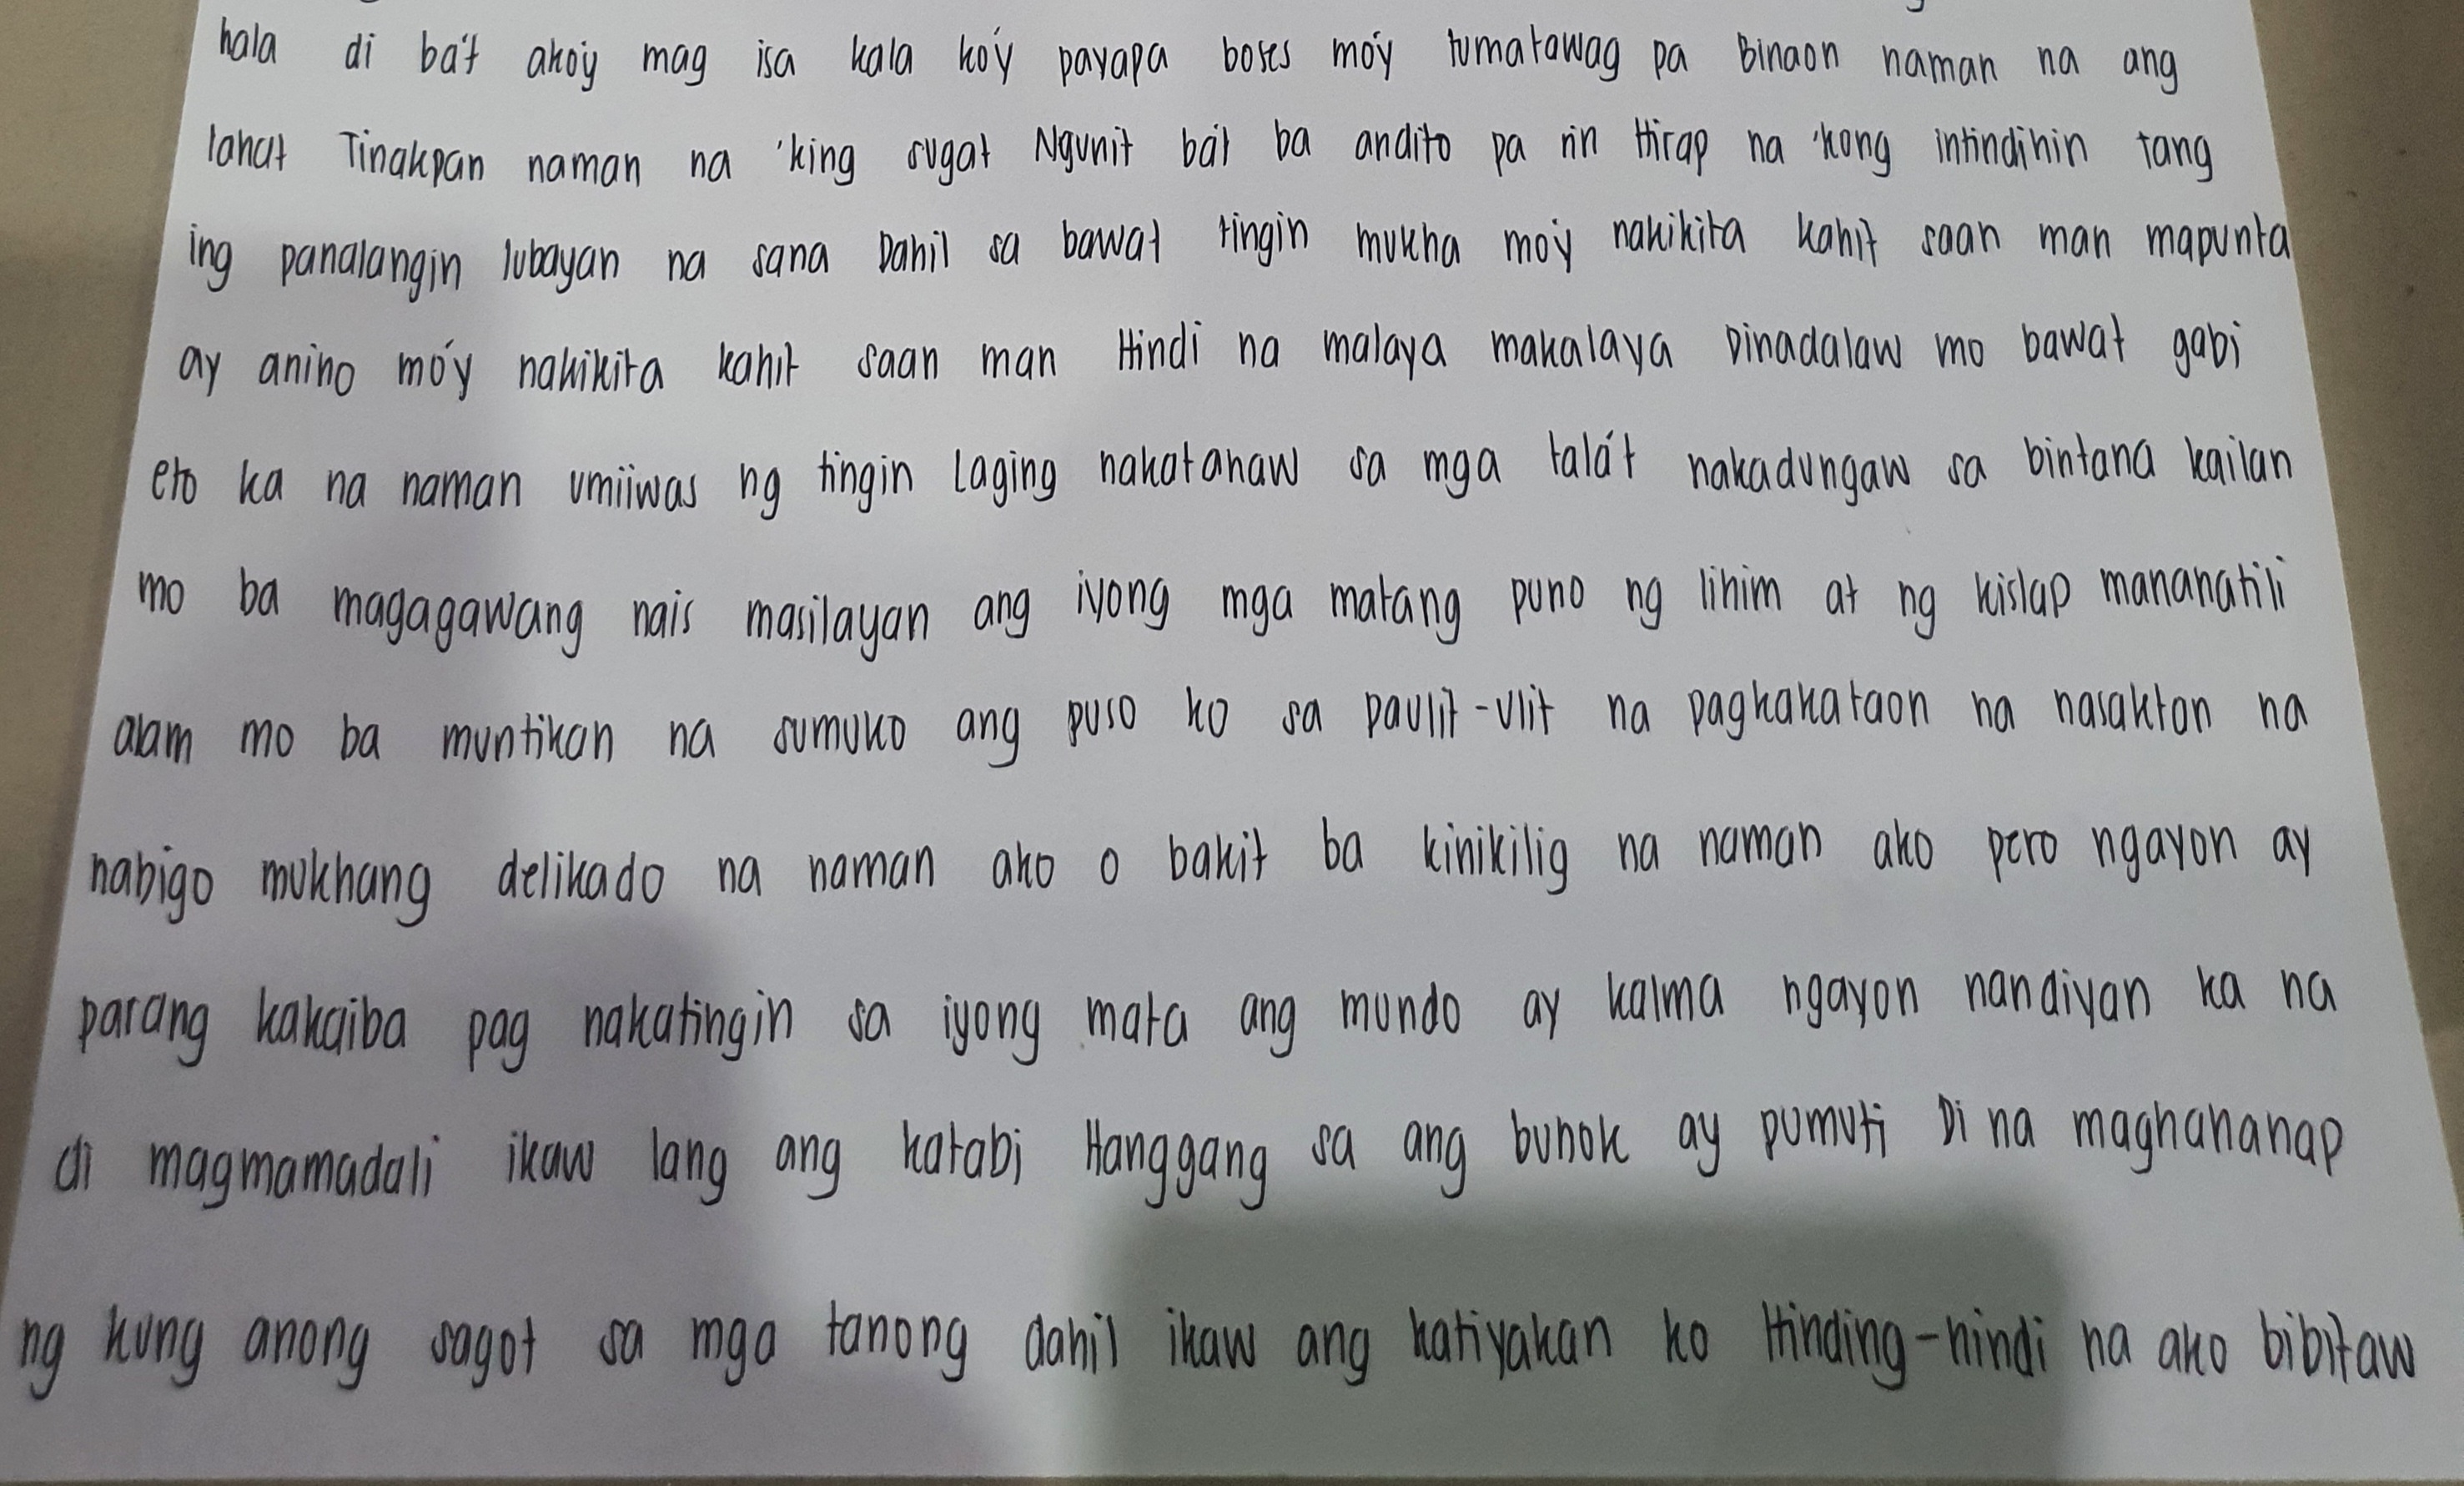 hala di ba't ako'y mag isa kala ko'y payapa boses mo'y tumatawag pa Binaon naman na ang
lahat Tinakpan naman na 'king sugat Ngunit ba't ba andito pa rin Hirap na 'kong intindihin tang
ing panalangin lubayan na sana Dahil sa bawat tingin mukha mo'y nakikita kahit saan man mapunta
ay anino mo'y nakikita kahit saan man Hindi na malaya makalaya Dinadalaw mo bawat gabi
eto ka na naman umiiwas ng tingin Laging nakatanaw sa mga tala't nakadungaw sa bintana kailan
mo ba magagawang nais masilayan ang iyong mga matang puno ng lihim at ng kislap mananatili
alam mo ba muntikan na sumuko ang puso ko sa paulit-ulit na pagkakataon na nasaktan na
nabigo mukhang delikado na naman ako o bakit ba kinikilig na naman ako pero ngayon ay
parang kakaiba pag nakatingin sa iyong mata ang mundo ay kalma ngayon nandiyan ka na
di magmamadali ikaw lang ang katabi Hanggang sa ang buhok ay pumuti Di na maghahanap
ng kung anong sagot sa mga tanong dahil ikaw ang katiyakan ko Hinding-hindi na ako bibitaw